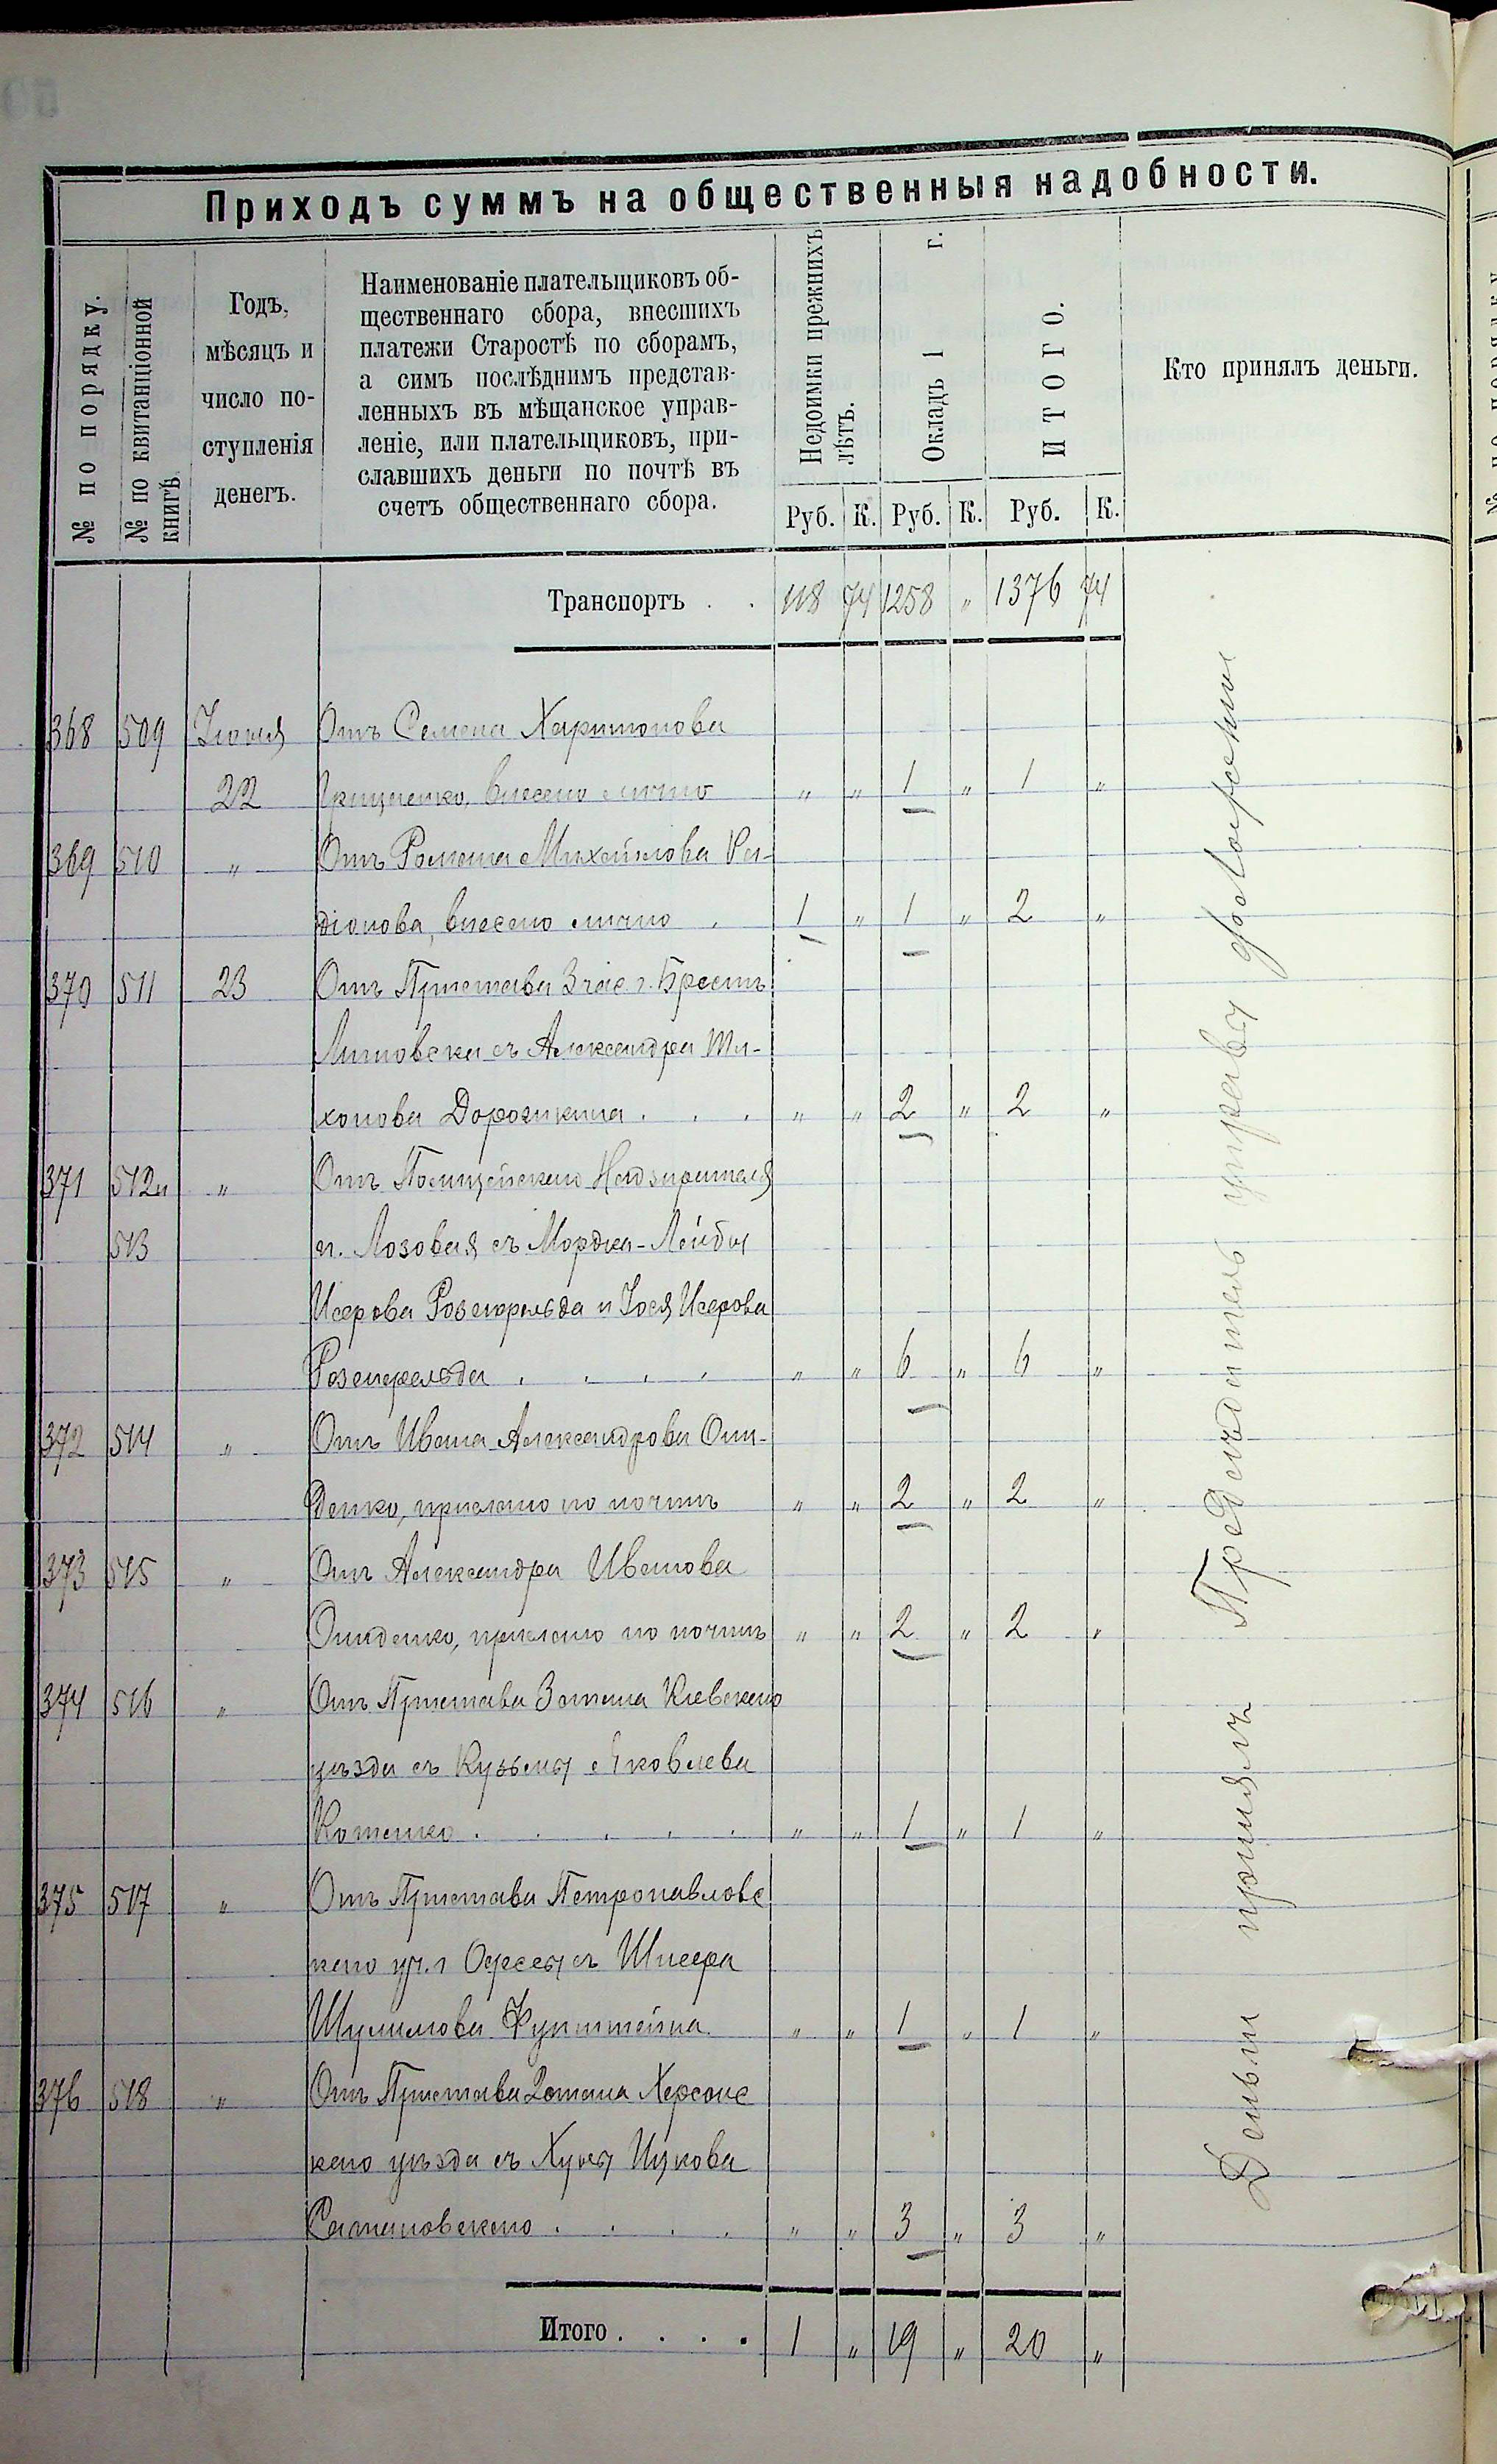 Приходъ суммъ на общественныя надобности.
№ по порядку.
№ по квитанціонной книгѣ.
Годъ,
мѣсяцъ и
число по-
ступленія
денегъ.
Наименованіе плательщиковъ об-
щественнаго сбора, внесшихъ
платежи Старостѣ по сборамъ,
а симъ послѣднимъ представ-
ленныхъ въ мѣщанское управ-
леніе, или плательщиковъ, при-
славшихъ деньги по почтѣ въ
счетъ общественнаго сбора.
Недоимки прежнихъ лѣтъ.
Окладъ 1 г.
ИТОГО.
Кто принялъ деньги.
Руб. К. Руб. К. Руб. К.
Транспортъ . . 118 74 1258 " 1376 74
368 509 Іюня Отъ Семена Харитонова
22 Грищенко, внесено лично " " 1 " 1 "
369 510 " Отъ Романа Михайлова Ра-
діонова, внесено лично . 1 " 1 " 2 "
370 511 23 Отъ Пристава 3 час. г. Брестъ
Литовска съ Александра Ти-
хонова Дорогикина . . . " " 2 " 2 "
371 512 и " Отъ Полицейскаго Надзирателя
513 п. Лозовая съ Мордка-Лейбы
Исерова Розенфельда и Іося Исерова
Розенфельда . . . . " " 6 " 6 "
372 514 " Отъ Ивана Александрова Они-
денко, прислано по почтѣ " " 2 " 2 "
373 515 " Отъ Александра Иванова
Ониденко, прислано по почтѣ " " 2 " 2 "
374 516 " Отъ Пристава 3 стана Кіевскаго
уѣзда съ Кузьмы Яковлева
Котенко . . . . . " " 1 " 1 "
375 517 " Отъ Пристава Петропавловс
каго уч. г Одессы съ Шлема
Шулимова " " 1 " 1 "
376 518 " Отъ Пристава 2 стана Херсонс
каго уѣзда съ Хуны Ицкова
. . . . " " 3 " 3 "
Итого . . . . 1 " 19 " 20 "
Деньги принялъ Предсѣдатель управы